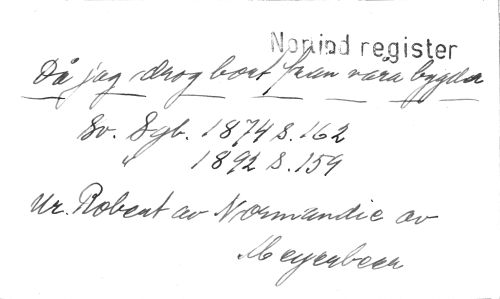 Nopiad register
Då jag drog bort från våra bygder
Sv. Sgb. 1874 S. 162
" 1892 S. 159
Ur. Robert av Normandie av
Meyerbeer